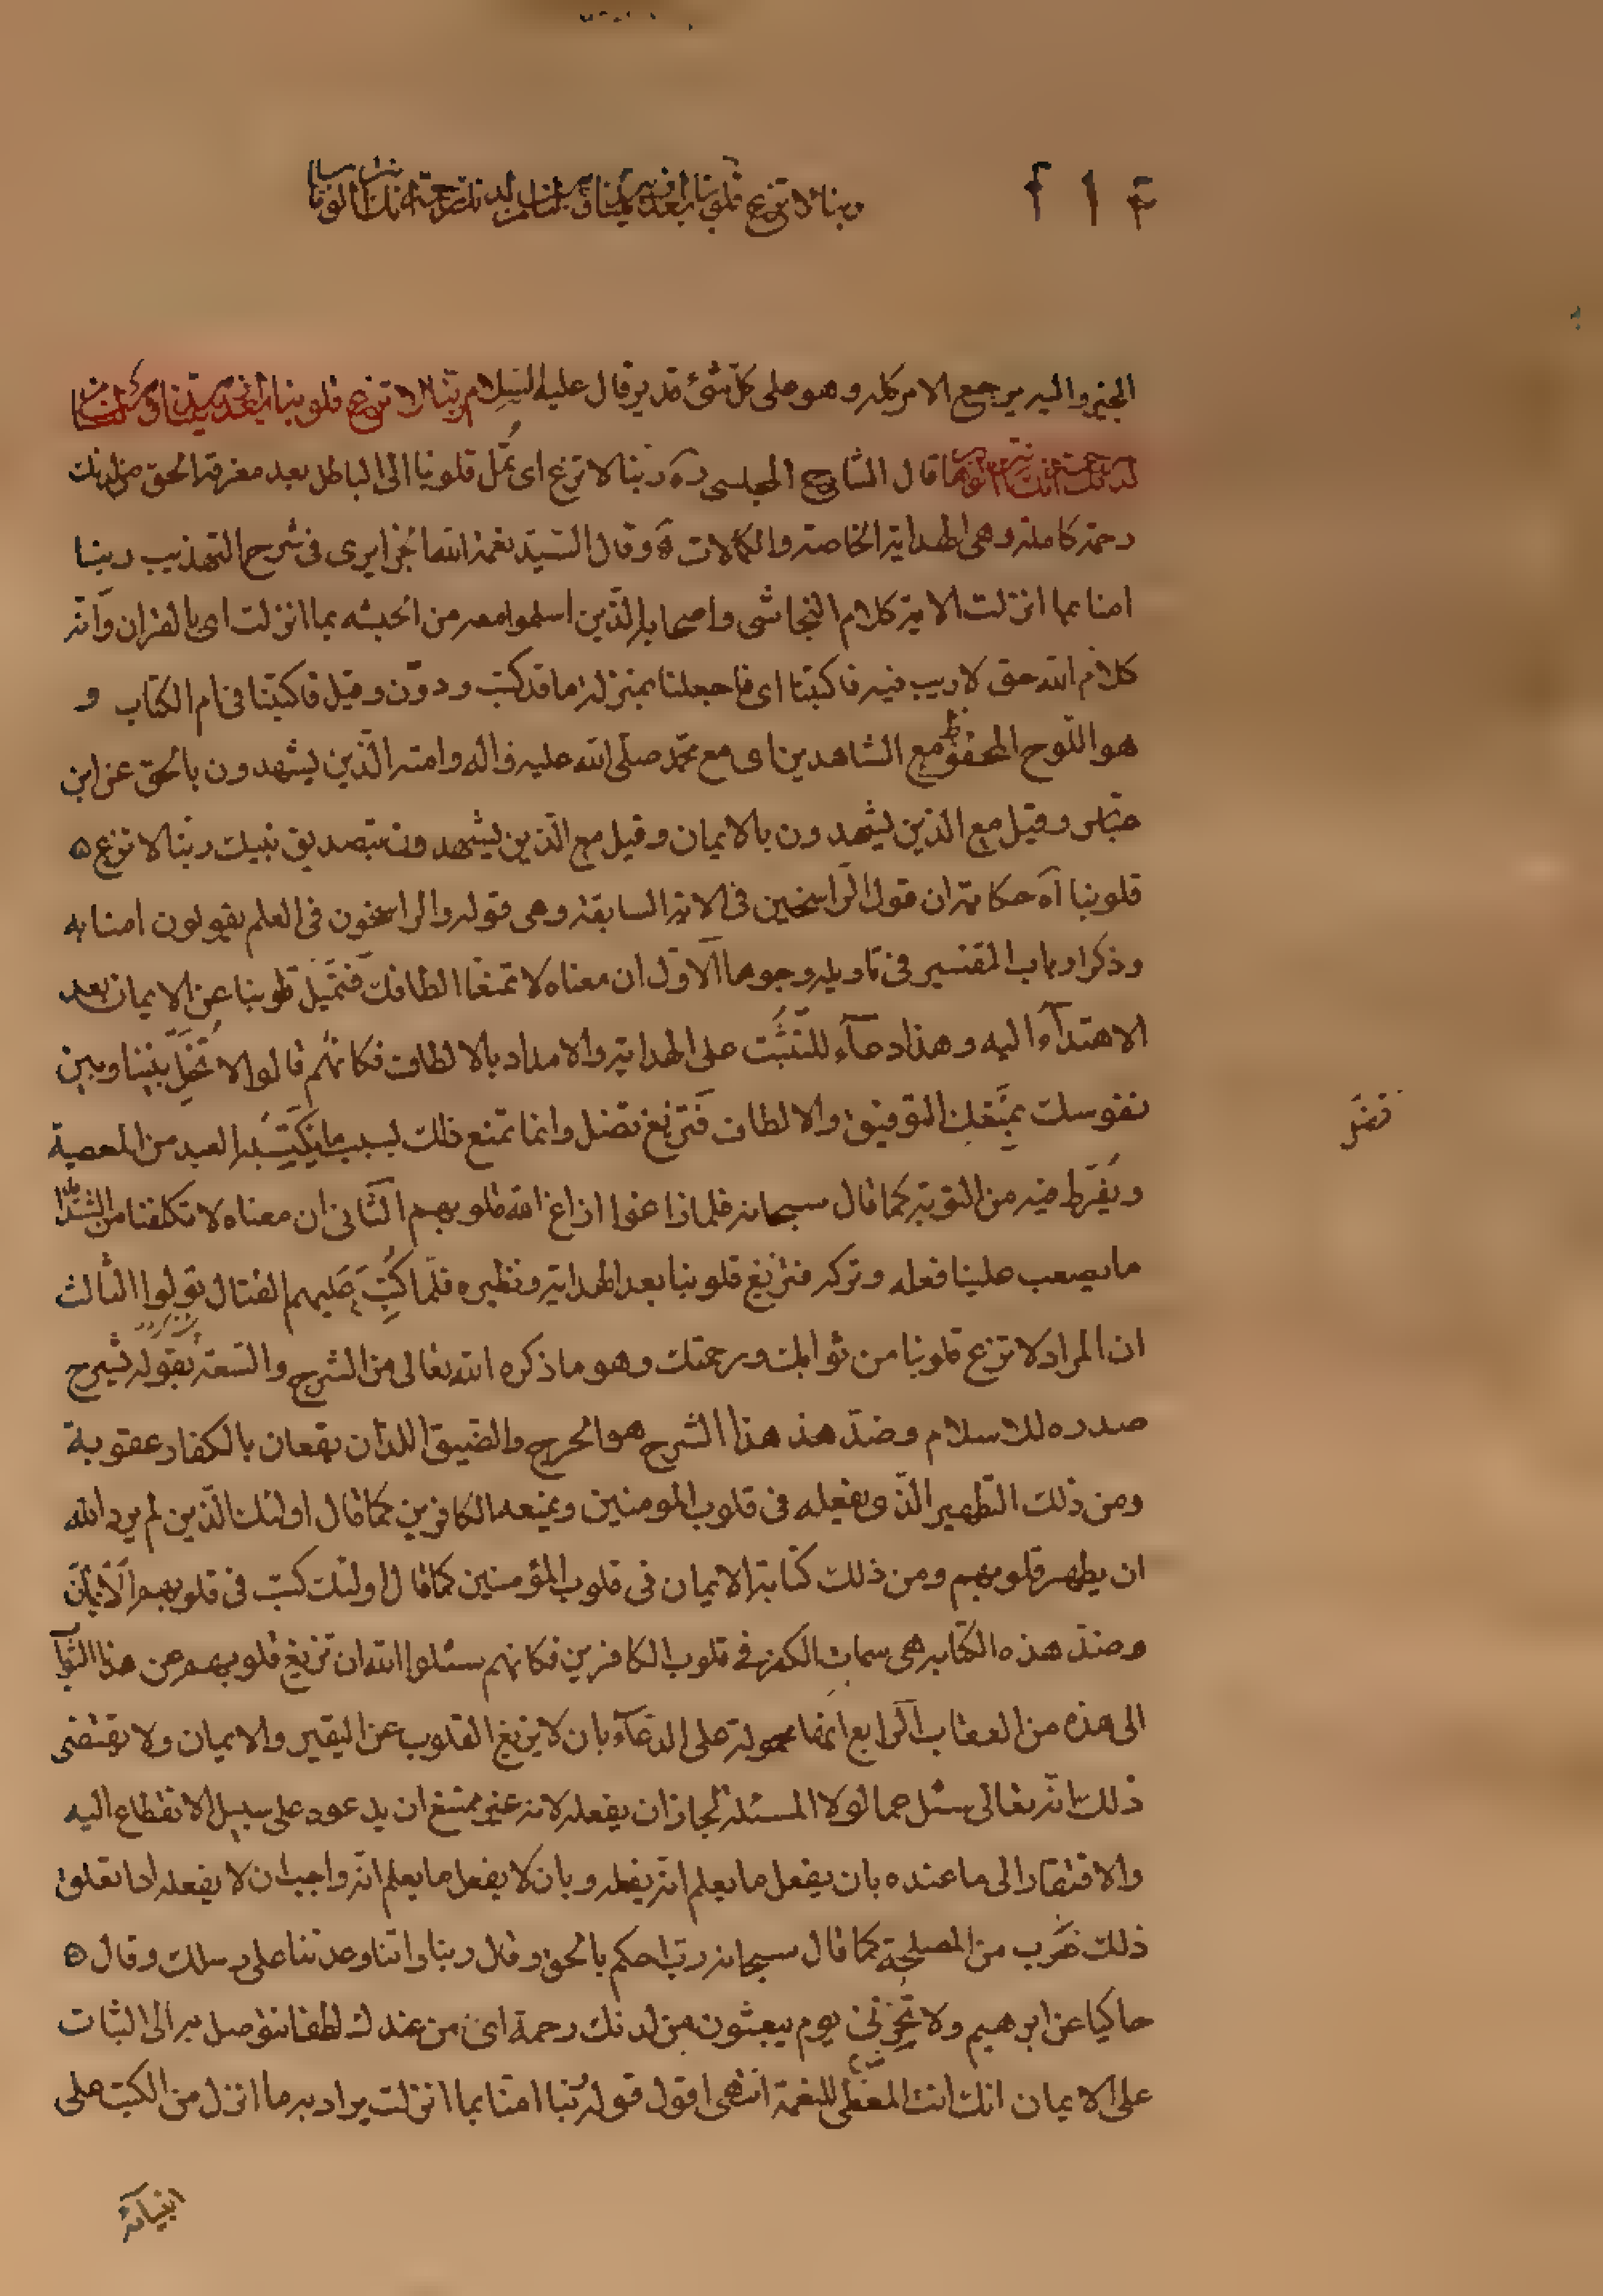 ربنا لا تزغ قلوبنا بعد اذ هديتنا وهب لنا من لدنك رحمة انك انت الوهاب
الخير واليه يرجع الامر كله وهو على كلّ شئ قدير قال عليه السلام ربّنا لا تزغ قلوبنا بعد اذ هديتنا وهب لنا من
لدنك رحمة انك انت الوهاب قال الشارح المجلسى ره ربنا لا تزغ اى تُمل قلوبنا الى الباطل بعد معرفة الحق من لدنك
رحمة كاملة وهى الهداية الخاصة والكمالات آه وقال السّيد نعمة الله الجزايرى فى شرح التهذيب ربنا
امنا بما انزلت الاية كلام النجاشى واصحابه الّذين اسلموا معه من الحبشه بما انزلت اى بالقران وانّه
كلام الله حق لا ريب فيه فاكتبنا اى فاجعلنا بمنزلة ما قد كتب ودوّن وقيل فاكتبنا فى ام الكتاب و
هو اللّوح المحفوظ مع الشاهدين اى مع محمّد صلّى الله عليه واله وامته الّذين يشهدون بالحق عن ابن
عبّاس وقيل مع الذين يشهدون بالايمان وقيل مع الّذين يشهدون بتصديق نبيك ربّنا لا تزغ
قلوبنا آه حكاية ان قول الرّاسخين فى الاية السابقة وهى قوله والراسخون فى العلم يقولون امنا به
وذكر ارباب التفسير فى تاويله وجوها الاوّل ان معناه لا تمنعنا الطافك فتميل قلوبنا عن الايمان بعد
الاهتداء اليه وهذا دعاء للتّثبّت على الهداية والامداد بالالطاف فكانّهم قالوا لا تُخَلِّ بيننا وبين
نفوسنا بمنعك التوفيق والالطاف فنزيغ نضل وانما تمنع ذلك بسبب ما يكتسبه العبد من المعصية
ويُفرّط فيه من التوبة كما قال سبحانه فلما زاغوا ازاغ الله قلوبهم الثّانى ان معناه لا تكلفنا من الشدائد
ما يصعب علينا فعله وتركه فتزيغ قلوبنا بعد الهداية ونظيره فلمّا كُتِبَ عليهم القتال تولوا الثالث
ان المراد لا تزغ قلوبنا من ثوابك ورحمتك وهو ما ذكره الله تعالى من الشرح والسّعة بقوله يشرح
صدره للاسلام وضدّ هذ هذا الشرح هو الحرج والضيق اللذان يقعان بالكفار عقوبة
ومن ذلك التطهير الّذى يفعله فى قلوب المومنين ويمنعه الكافرين كما قال اولئك الّذين لم يرد الله
ان يطهر قلوبهم ومن ذلك كتابة الايمان فى قلوب المؤمنين كما قال اولئك كتب فى قلوبهم الايمان
وضدّ هذه الكتابه هى سمات الكفر فى قلوب الكافرين فكانهم سئلوا الله ان لا تزيغ قلوبهم عن هذا الثواب
الى هذه من العقاب الرّابع انّها محمولة على الدعاء بان لا يزيغ القلوب عن اليقين والايمان ولا يقتضى
ذلك انّه تعالى سئل عما لو لا المسئلة لجاز ان يفعله لانه غير ممتنع ان يدعوه على سبيل الانقطاع اليه
والافتقار الى ما عنده بان يفعل ما يعلم انّه يفعله وبان لا يفعل ما يعلم انّه واجب ان لا يفعله اذا تعلق
ذلك ضَرب من المصلحة كما قال سبحانه رب احكم بالحق وقال ربنا واتنا وعدتنا على رسلك وقال
حاكيا عن ابرهيم ولا تُخزنى يوم يبعثون من لدنك رحمة اى من عندك لطفا نتوصل به الى الثبات
على الايمان انك انت المعطى للنعمة انتهى اقول قوله ربّنا امنا بما انزلت يراد به ما انزل من الكتب على
انبيائه